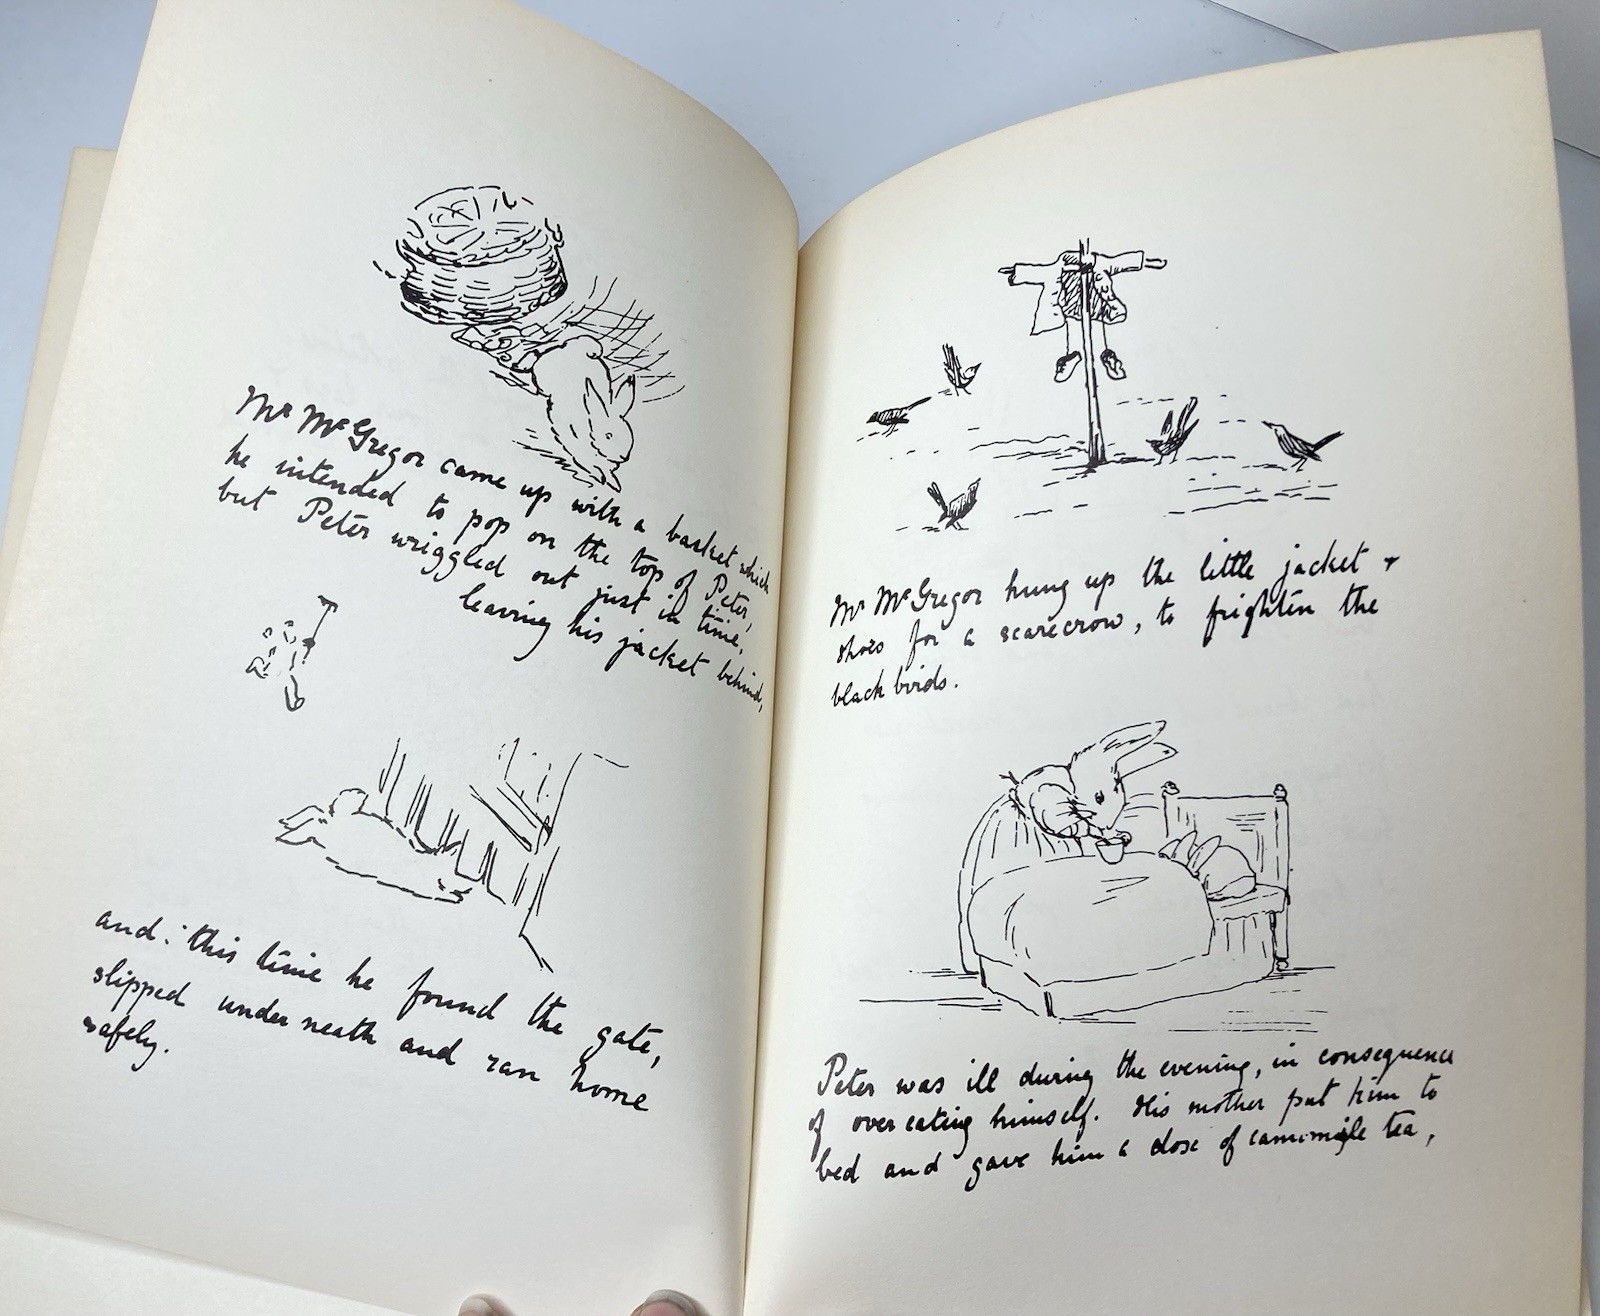 Mr McGregor came up with a basket which
he intended to pop on the top of Peter,
but Peter wriggled out just in time,
leaving his jacket behind,
and this time he found the gate,
slipped underneath and ran home
safely.
Mr McGregor hung up the little jacket &
shoes for a scarecrow, to frighten the
black birds.
Peter was ill during the evening, in consequence
of over eating himself. His mother put him to
bed and gave him a dose of camomile tea,